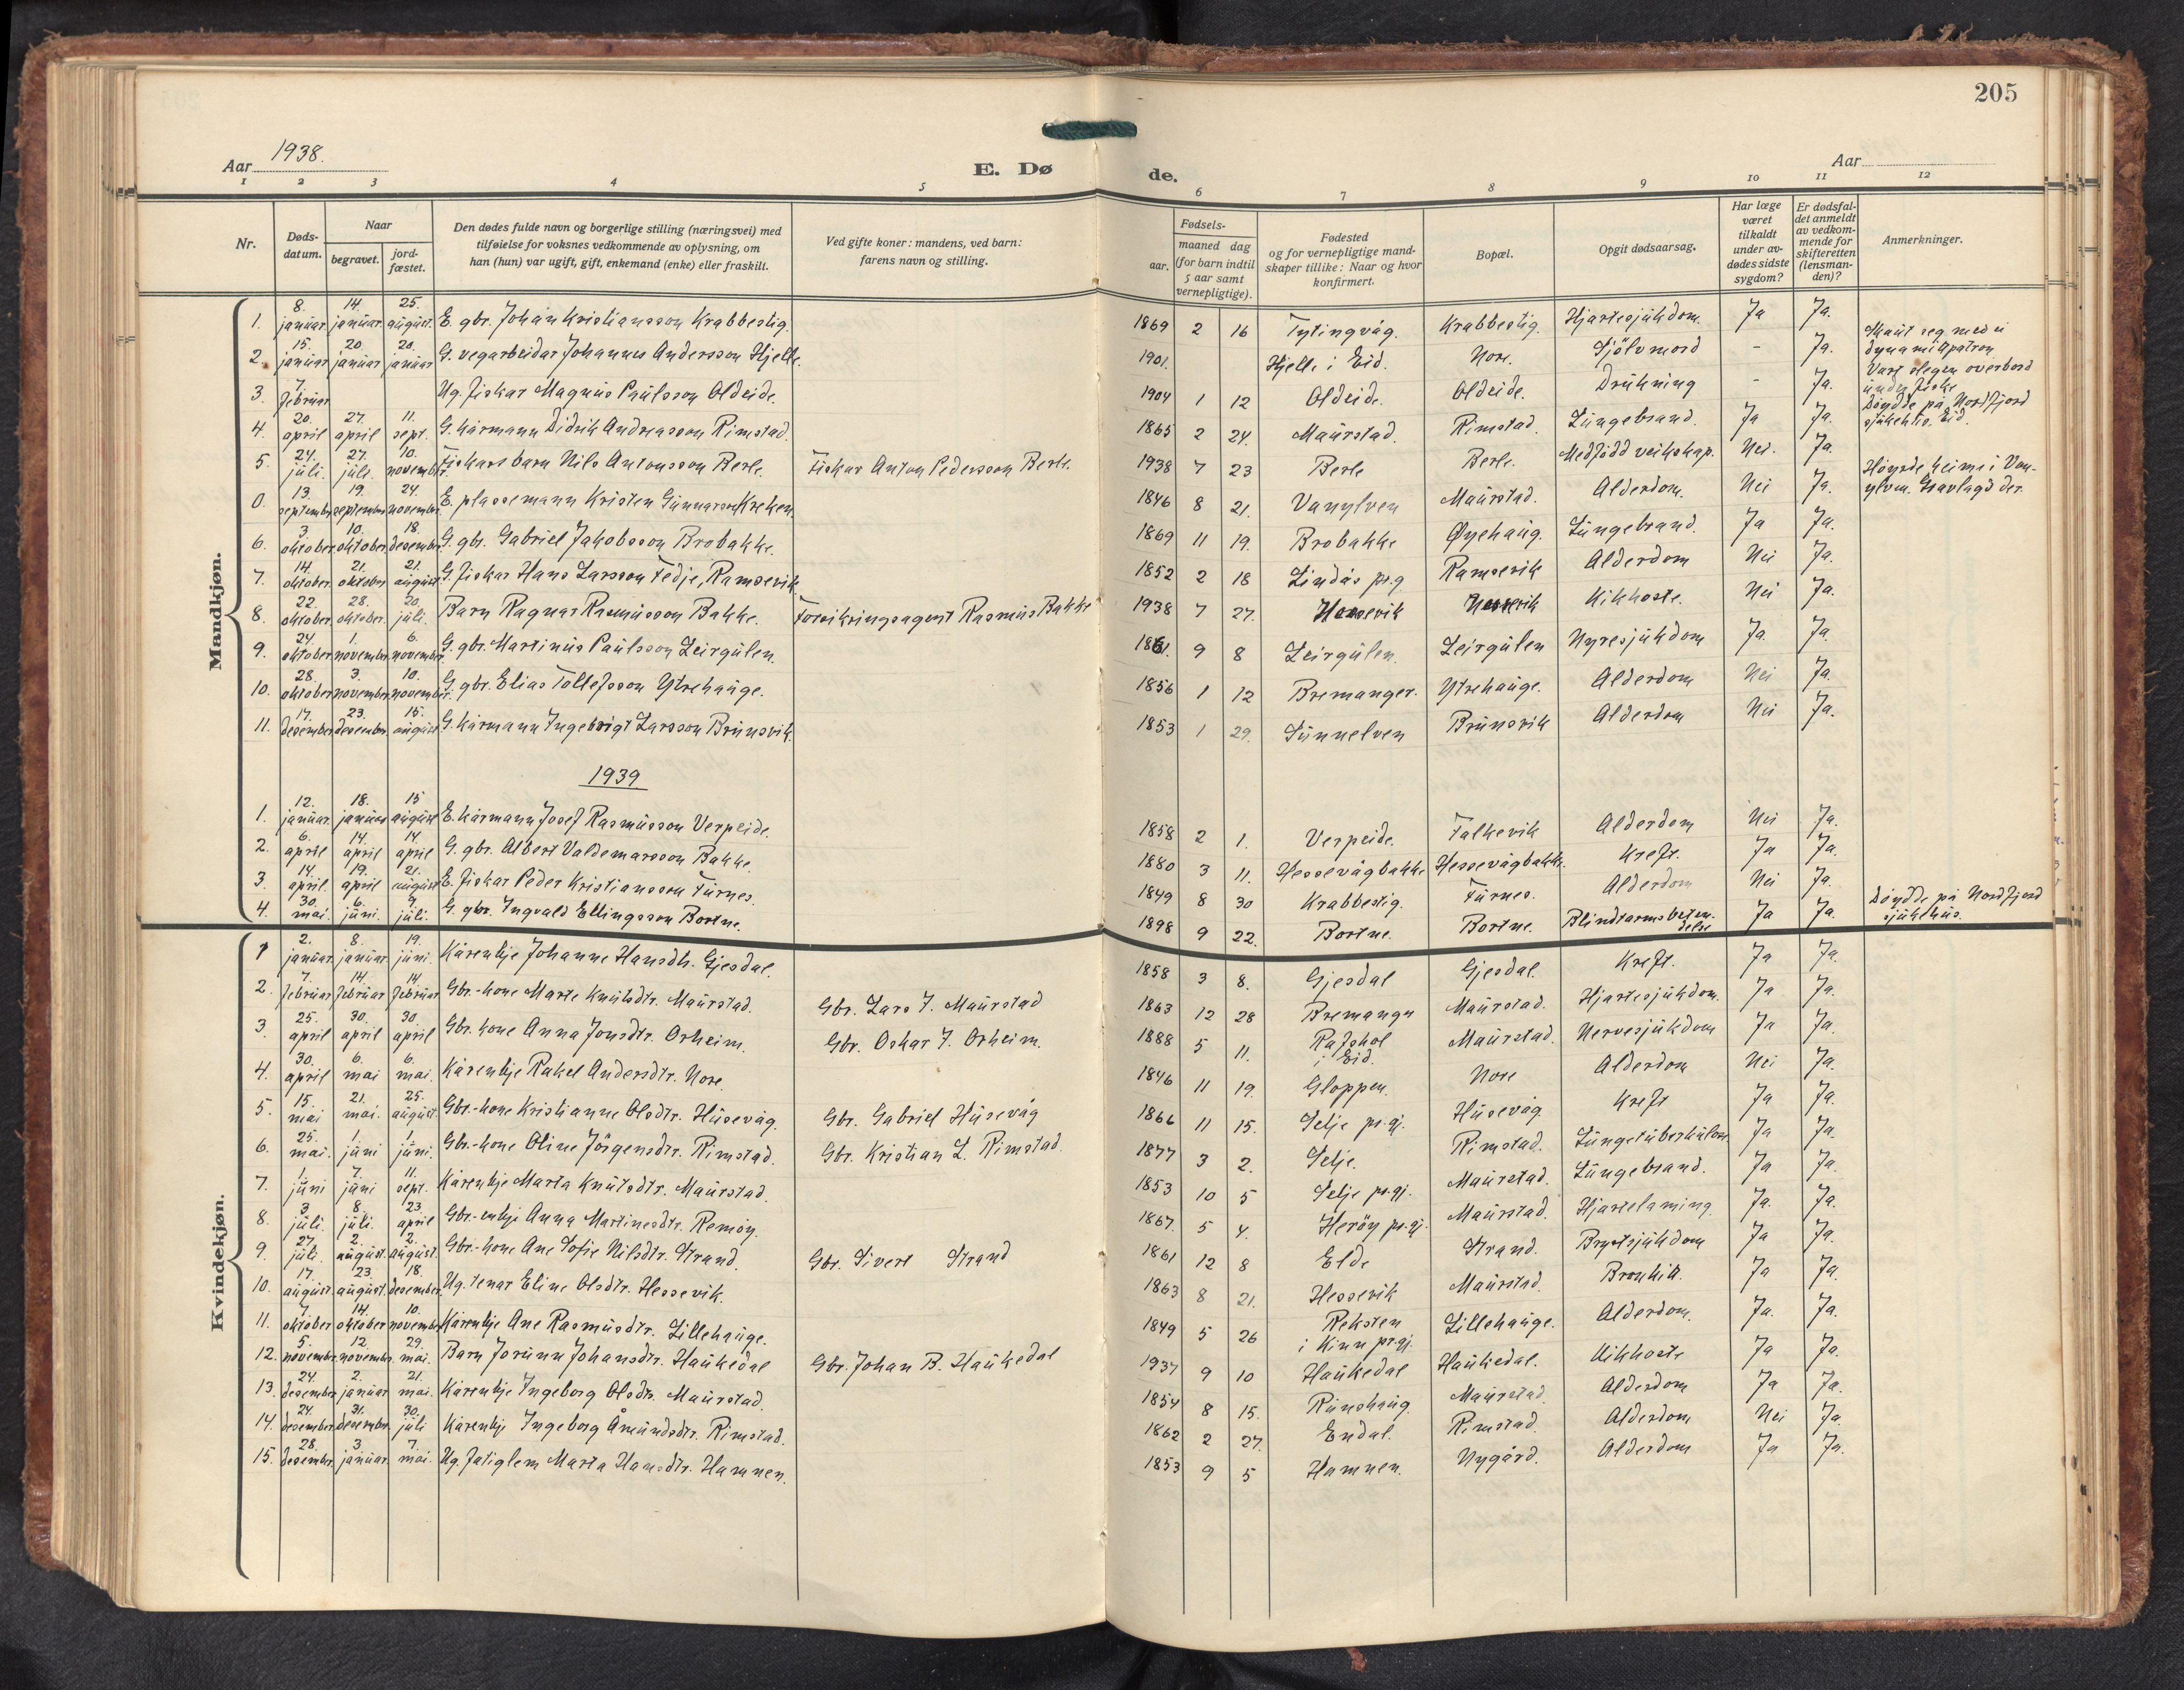 205
Aar 1938.
E. Dø
de.
Aar
1 2 3 4 5 6 7 8 9 10 11 12
Nr.
Døds-datum.
Naar
begravet.
jord-fæstet.
Den dødes fulde navn og borgerlige stilling (næringsvei) med
tilføielse for voksnes vedkommende av oplysning, om
han (hun) var ugift, gift, enkemand (enke) eller fraskilt.
Ved gifte koner: mandens, ved barn:
farens navn og stilling.
Fødsels-
aar.
maaned dag
(for barn indtil
5 aar samt
vernepligtige).
Fødested
og for vernepligtige mand-
skaper tillike: Naar og hvor
konfirmert.
Bopæl.
Opgit dødsaarsag.
Har læge
været
tilkaldt
under av-
dødes sidste
sygdom?
Er dødsfal-
det anmeldt
av vedkom-
mende for
skifteretten
(lensman-
den)?
Anmerkninger.
Mandkjøn.
1. 8. januar 14. januar 25. august. E. gbr. Johan Kristiansson Krabbestig. 1869 2 16 Tytingvåg. Krabbestig. Hjartesjukdom. Ja Ja.
2. 15. januar 20. januar 20. januar G. vegarbeidar Johannes Andersson Hjelle. 1901. Hjelle i Eid. Nore. Sjölvmord - Ja. Skaut seg med ei dynamitpatron
3. 7. februar Ug. fiskar Magnus Paulsson Oldeide. 1904 1 12 Oldeide. Oldeide. Drukning - Ja. Vart slegen overbord under fiske
4. 20. april 27. april 11. sept. G. kårmann Didrik Andreasson Rimstad. 1865 2 24. Maurstad. Rimstad. Lungebrand. Ja Ja. Döydde på Nordfjord sjukehus. Eid.
5. 24. juli. 27. juli. 10. november. Fiskars barn Nils Antonsson Berle. Fiskar Anton Pedersson Berle. 1938 7 23 Berle Berle. Medfödd veikskap. Nei. Ja.
0. 13. september 19. september 24. november E. plassemann Kristen Gunnarson Kreken. 1846 8 21. Vanylven Maurstad. Alderdom. Nei Ja. Höyrde heime i Van-ylven. Gravlagd der.
6. 3. oktober 10. oktober 18. desember G. gbr. Gabriel Jakobsson Brobakke. 1869 11 19. Brobakke Øyehaug. Lungebrand. Ja Ja.
7. 14. oktober 21. oktober 21. august G. fiskar Hans Larsson Fedje, Ramsevik 1852 2 18 Lindås pr.g. Ramsevik Alderdom Nei Ja.
8. 22. oktober 28. oktober 20. juli. Barn Ragnar Rasmusson Bakke. Forsikringsagent Rasmus Bakke 1938 7 27. Hessevik Hessevik Kikhoste. Nei Ja.
9. 24. oktober 1. november 6. november. G. gbr. Martinus Paulsson Leirgulen. 1861. 9 8 Leirgulen. Leirgulen Nyresjukdom Ja Ja.
10. 28. oktober 3. november 10. november. G. gbr. Elias Tollefsson Ytrehauge. 1856 1 12 Bremanger. Ytrehauge. Alderdom Nei Ja.
11. 17. desember 23. desember 15. august G. kårmann Ingebrigt Larsson Brunsvik. 1853 1 29. Sunnelven Brunsvik Alderdom Nei Ja.
1939
1. 12. januar. 18. januar 15 august E. kårmann Josef Rasmusson Verpeide. 1858 2 1. Verpeide. Falkevik Alderdom Nei Ja.
2. 6. april 14. april 14. april G. gbr. Albert Valdemarsson Bakke. 1880 3 11. Hessevågbakke Hessevågbakke. Kreft. Ja Ja.
3. 14. april. 19. april 21. august E. fiskar Peder Kristiansson Furnes. 1849 8 30 Krabbestig. Furnes. Alderdom Nei Ja.
4. 30. mai. 6. juni. 9. juli. G. gbr. Ingvald Ellingsson Bortne. 1898 9 22. Bortne. Bortne. Blindtarmsbeten-delse Ja Ja. Döydde på Nordfjord sjukehus.
Kvindekjøn.
1 2. januar 8. januar. 19. juni. Kårenkje Johanne Hansdtr. Gjesdal. 1858 3 8. Gjesdal Gjesdal. Kreft. Ja Ja.
2. 7. februar 14. februar 14. februar Gbr.-kone Marte Knutsdtr. Maurstad. Gbr. Lars J. Maurstad 1863 12 28 Bremanger Maurstad. Hjartesjukdom. Ja Ja.
3. 25. april 30. april 30. april Gbr. kone Anna Jonsdtr. Orheim. Gbr. Oskar J. Orheim. 1888 5 11. Rafshol i Eid. Maurstad. Nervesjukdom Ja Ja.
4. 30. april 6. mai 6. mai. Kårenkje Rakel Andersdtr. Nore. 1846 11 19. Gloppen. Nore Alderdom Nei Ja.
5. 15. mai 21. mai. 25. august. Gbr.-kone Kristianne Olsdtr. Husevåg. Gbr. Gabriel Husevåg 1866 11 15. Selje pr.gj. Husevåg Kreft Ja Ja.
6. 25. mai. 1. juni 1. juni. Gbr.-kone Oline Jörgensdtr. Rimstad. Gbr. Kristian L. Rimstad. 1877 3 2. Selje. Rimstad. Lungetuberkulose Ja Ja.
7. 1. juni 7. juni 11. sept. Kårenkje Marta Knutsdtr. Maurstad. 1853 10 5 Selje pr.gj. Maurstad. Lungebrand. Ja Ja.
8. 3. juli. 8. juli. 23. april Gbr.-enkje Anna Martinesdtr. Remöy. 1867. 5 4. Heröy pr.gj. Maurstad. Hjartelaming. Ja. Ja.
9. 27. juli. 2. august. 2. august. Gbr.-kone Ane Sofie Nilsdtr. Strand. Gbr. Sivert Strand 1861 12 8 Elde Strand. Brystsjukdom Ja Ja.
10. 17. august 23 august. 18. desember. Ug. tenar Eline Olsdtr. Hessevik. 1863 8 21. Hessevik Maurstad. Bronkitt. Ja Ja.
11. 7. oktober 14. oktober 10. november Kårenkje Ane Rasmusdtr. Lillehauge. 1849 5 26 Reksten i Kinn pr.gj. Lillehauge. Alderdom. Ja. Ja.
12. 5. november. 12. november. 29. mai. Barn Jorunn Johansdtr. Haukedal Gbr. Johan B. Haukedal 1937 9 10 Haukedal Haukedal. Kikhoste Ja Ja.
13. 24. desember 2. januar 21. mai. Kårenkje Ingeborg Olsdtr. Maurstad. 1854 8 15. Runshaug. Maurstad. Alderdom Ja Ja.
14. 24. desember 31. desember. 30. juli Kårenkje Ingeborg Åmundsdtr. Rimstad. 1862 2 27. Endal. Rimstad. Alderdom Nei Ja.
15. 28. desember. 3. januar. 7. mai. Ug. fatiglem Marta Hansdtr. Hamnen. 1853 9 5 Hamnen. Nygård. Alderdom Ja Ja.